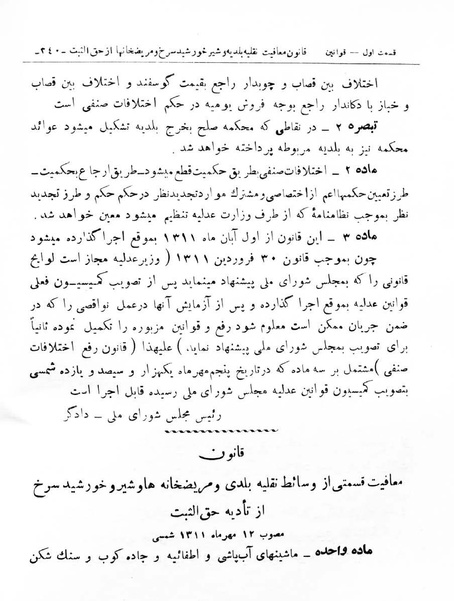 قسمت اول — قوانین قانون معافیت نقلیه بلدیه و شیر خورشید سرخ و مریضخانها از حق الثبت -۲۴۰-
اختلاف بین قصاب و چوبدار راجع بقیمت گوسفند و اختلاف بین قصاب
و خباز با دکاندار راجع بوجه فروش یومیه در حکم اختلافات صنفی است
تبصره ۲ – در نقاطی که محکمه صلح بخرج بلدیه تشکیل میشود عوائد
محکمه نیز به بلدیه مربوطه پرداخته خواهد شد.
ماده ۲ – اختلافات صنفی بطریق حکمیت قطع میشود – طریق ارجاع بحکمیت –
طرز تعیین حکمها اعم از اختصاصی و مشترك موارد تجدید نظر در حکم حکم و طرز تجدید
نظر بموجب نظامنامهٔ که از طرف وزارت عدلیه تنظیم میشود معین خواهد شد.
ماده ۳ – این قانون از اول آبان ماه ۱۳۱۱ بموقع اجرا گذارده میشود
چون بموجب قانون ۳۰ فروردین ۱۳۱۱ ( وزیر عدلیه مجاز است لوایح
قانونی را که بمجلس شورای ملی پیشنهاد مینماید پس از تصویب کمیسیون فعلی
قوانین عدلیه بموقع اجرا گذارده و پس از آزمایش آنها در عمل نواقصی را که در
ضمن جریان ممکن است معلوم شود رفع و قوانین مزبوره را تکمیل نموده ثانیاً
برای تصویب بمجلس شورای ملی پیشنهاد نماید. ) علیهذا ( قانون رفع اختلافات
صنفی ) مشتمل بر سه ماده که در تاریخ پنجم مهر ماه یکهزار و سیصد و یازده شمسی
بتصویب کمیسیون قوانین عدلیه مجلس شورای ملی رسیده قابل اجرا است
رئیس مجلس شورای ملی – دادگر
قانون
معافیت قسمتی از وسائط نقلیه بلدی و مریضخانه ها و شیر و خورشید سرخ
از تأدیه حق الثبت
مصوب ۱۲ مهر ماه ۱۳۱۱ شمسی
ماده واحده – ماشینهای آب‌پاشی و اطفائیه و جاده کوب و سنك شکن